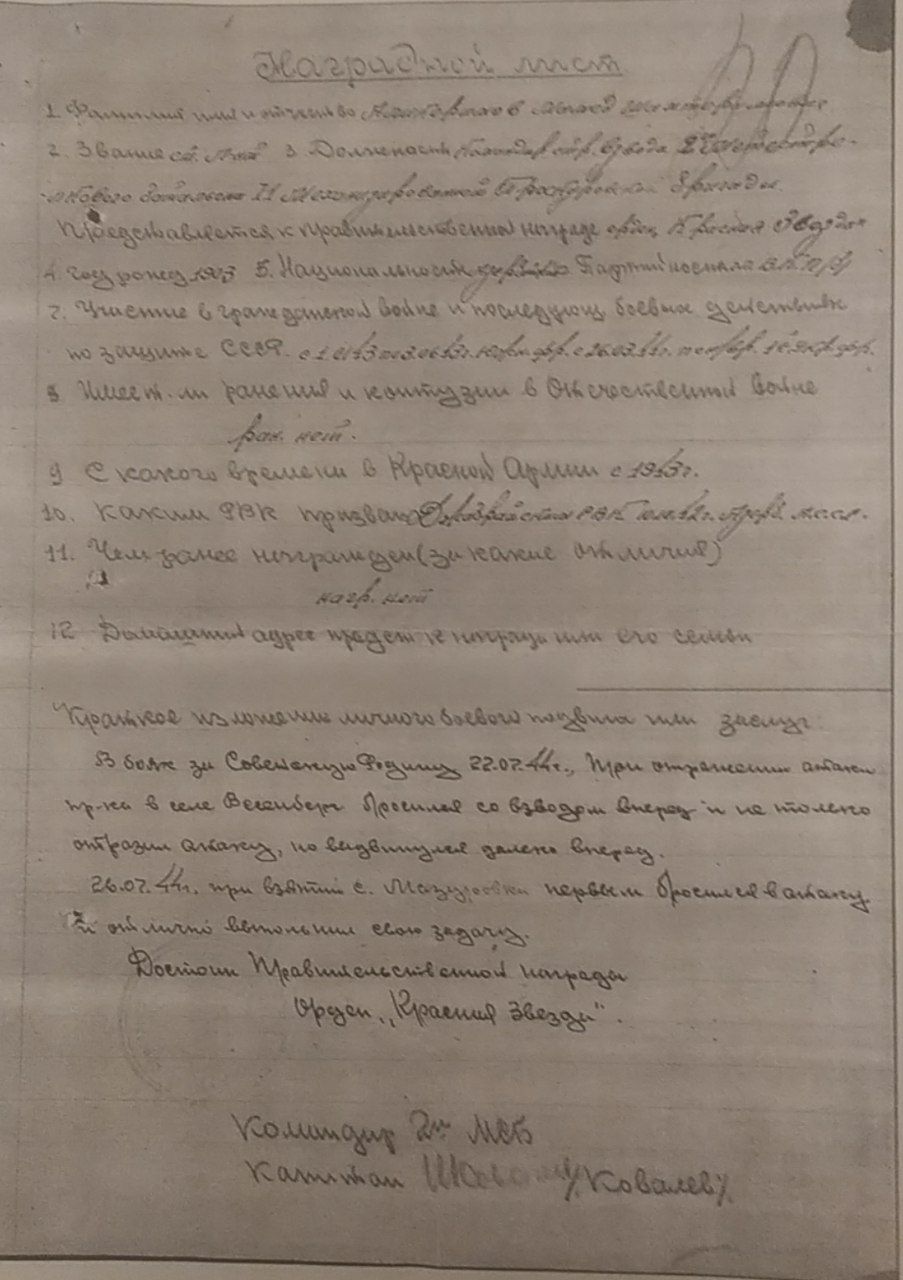 Наградной лист
1. Фамилия имя и отчество
2. Звание ст. л-нт 3. Должность Командир стр. взвода 2 мотостре-
лкового батальона 11 Механизированной бригады
Представляется к правительственной награде орден Красная Звезда
4. Год рожд 1913 5. Национальность Партийность
7. Участие в гражданской войне и последующ боевых действиях
по защите СССР. 1 Укр. фр.
8 Имеет ли ранения и контузии в Отечественной войне
ран. нет.
9 С какого времени в Красной Армии с
10. Каким РВК призван РВК
11. Чем ранее награжден (за какие отличия)
нагр. нет
12 Домашний адрес предст к награде или его семьи
Краткое изложение личного боевого подвига или заслуг:
В боях за Советскую Родину 22.07.44г., При отражении атаки
пр-ка в селе бросился со взводом вперед и не только
отразил атаку, но выдвинулся далеко вперед.
26.07.44г. при взятии с. первым бросился в атаку
и отлично выполнил свою задачу.
Достоин Правительственной награды
Орден „Красная Звезда".
Командир 2го МСБ
Капитан /Ковалев/